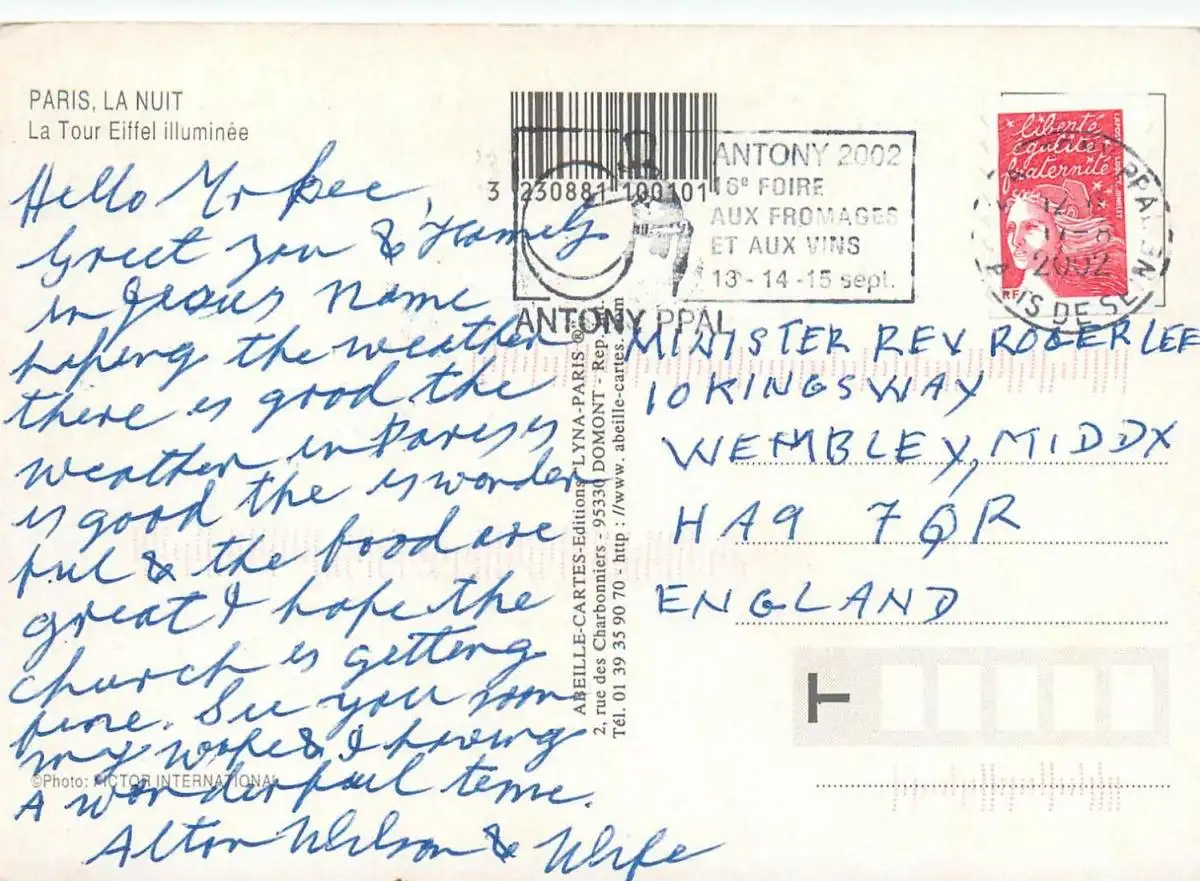 PARIS, LA NUIT
La Tour Eiffel illuminée
Hello Mr Lee,
Greet you & Family
in Jesus name
hoping the weather
there is good the
weather in Paris is
is good the is wonder
ful & the food are
great I hope the
church is getting
fine. See you soon
my wife & I having
A wonderful time.
Alton Wilson & Wife
©Photo: PICTOR INTERNATIONAL
3 230881 100101
ANTONY 2002
16e FOIRE
AUX FROMAGES
ET AUX VINS
13-14-15 sept.
ANTONY PPAL
liberté
égalité
fraternité
LA POSTE
RF
ANTONY PPAL
2002
HAUTS DE SEINE
ABEILLE-CARTES-Editions "LYNA-PARIS"®
2, rue des Charbonniers - 95330 DOMONT - Rep.
Tél. 01 39 35 90 70 - http://www.abeille-cartes.com
MINISTER REV ROGER LEE
10 KINGSWAY
WEMBLEY, MIDDX
HA9 7QR
ENGLAND
T